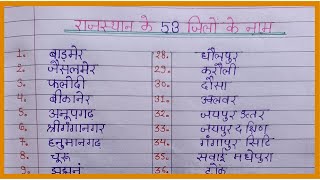 राजस्थान के 53 जिलों के नाम
1. बाड़मेर 28. धौलपुर
2. जैसलमेर 29. करौली
3. फलौदी 30. दौसा
4. बीकानेर 31. अलवर
5. अनूपगढ 32. जयपुर उत्तर
6. श्रीगंगानगर 33. जयपुर दक्षिण
7. हनुमानगढ 34. गंगापुर सिटि
8. चूरू 35. सवाई मधोपुरा
9. झुझुनूं 36. टोंक